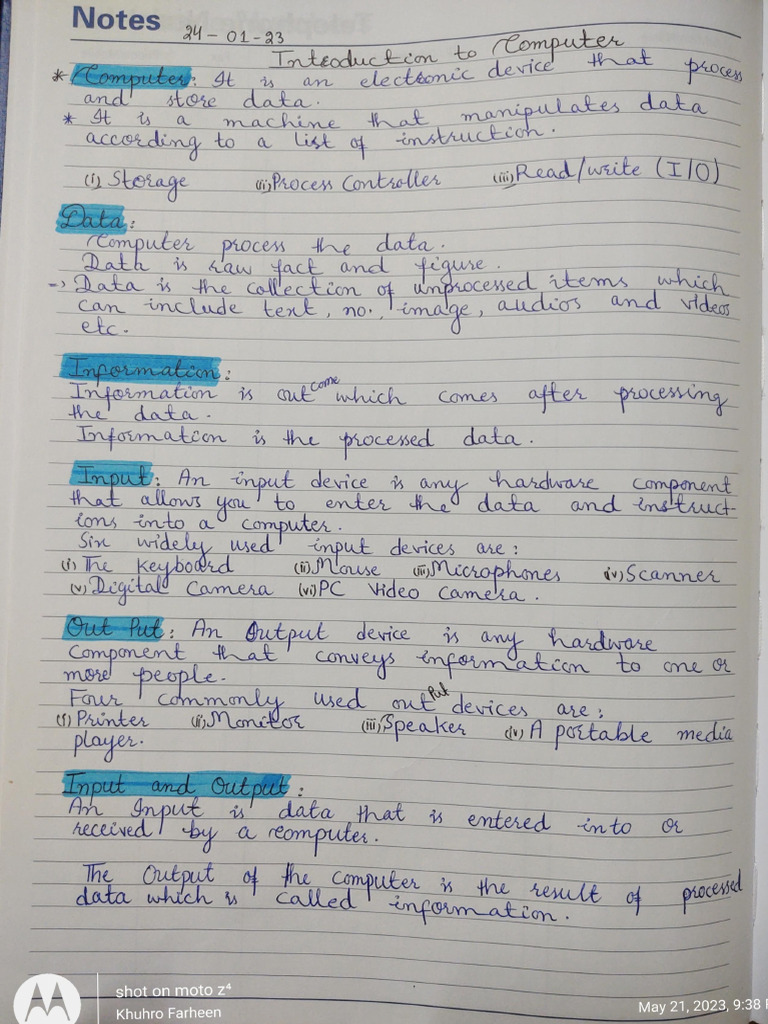 Notes 24-01-23
Introduction to Computer
* Computer: It is an electronic device that process
and store data.
* It is a machine that manipulates data
according to a list of instruction.
(i) Storage (ii) Process Controller (iii) Read/write (I/O)
Data:
Computer process the data.
Data is raw fact and figure.
-> Data is the collection of unprocessed items which
can include text, no., image, audios and videos
etc.
Information:
Information is outcome which comes after processing
the data.
Information is the processed data.
Input: An input device is any hardware component
that allows you to enter the data and instruct-
ions into a computer.
Six widely used input devices are:
(i) The keyboard (ii) Mouse (iii) Microphones (iv) Scanner
(v) Digital Camera (vi) PC Video Camera.
Out Put: An Output device is any hardware
component that conveys information to one or
more people.
Four commonly used output devices are:
(i) Printer (ii) Monitor (iii) Speaker (iv) A portable media
player.
Input and Output:
An Input is data that is entered into or
received by a computer.
The Output of the computer is the result of processed
data which is called information.
shot on moto z⁴
Khuhro Farheen
May 21, 2023, 9:38